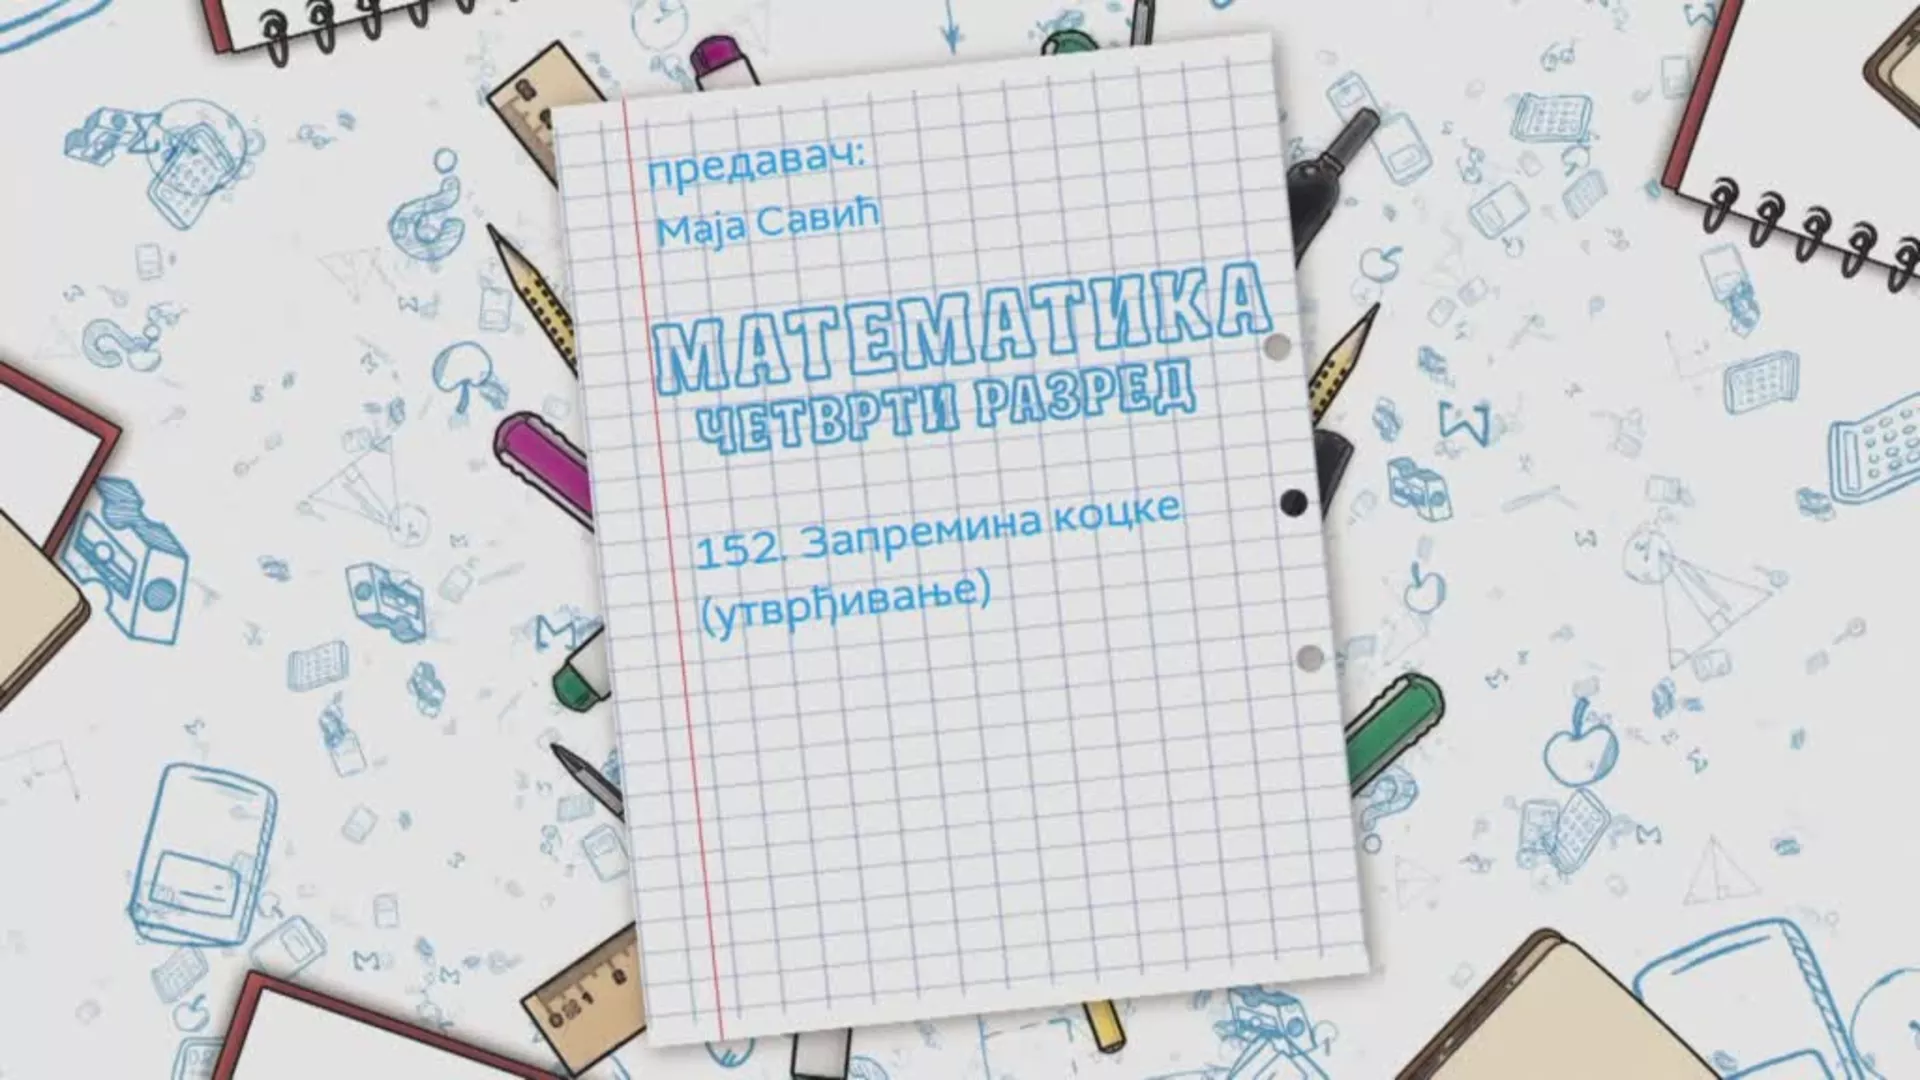 предавач:
Маја Савић
МАТЕМАТИКА
ЧЕТВРТИ РАЗРЕД
152. Запремина коцке
(утврђивање)